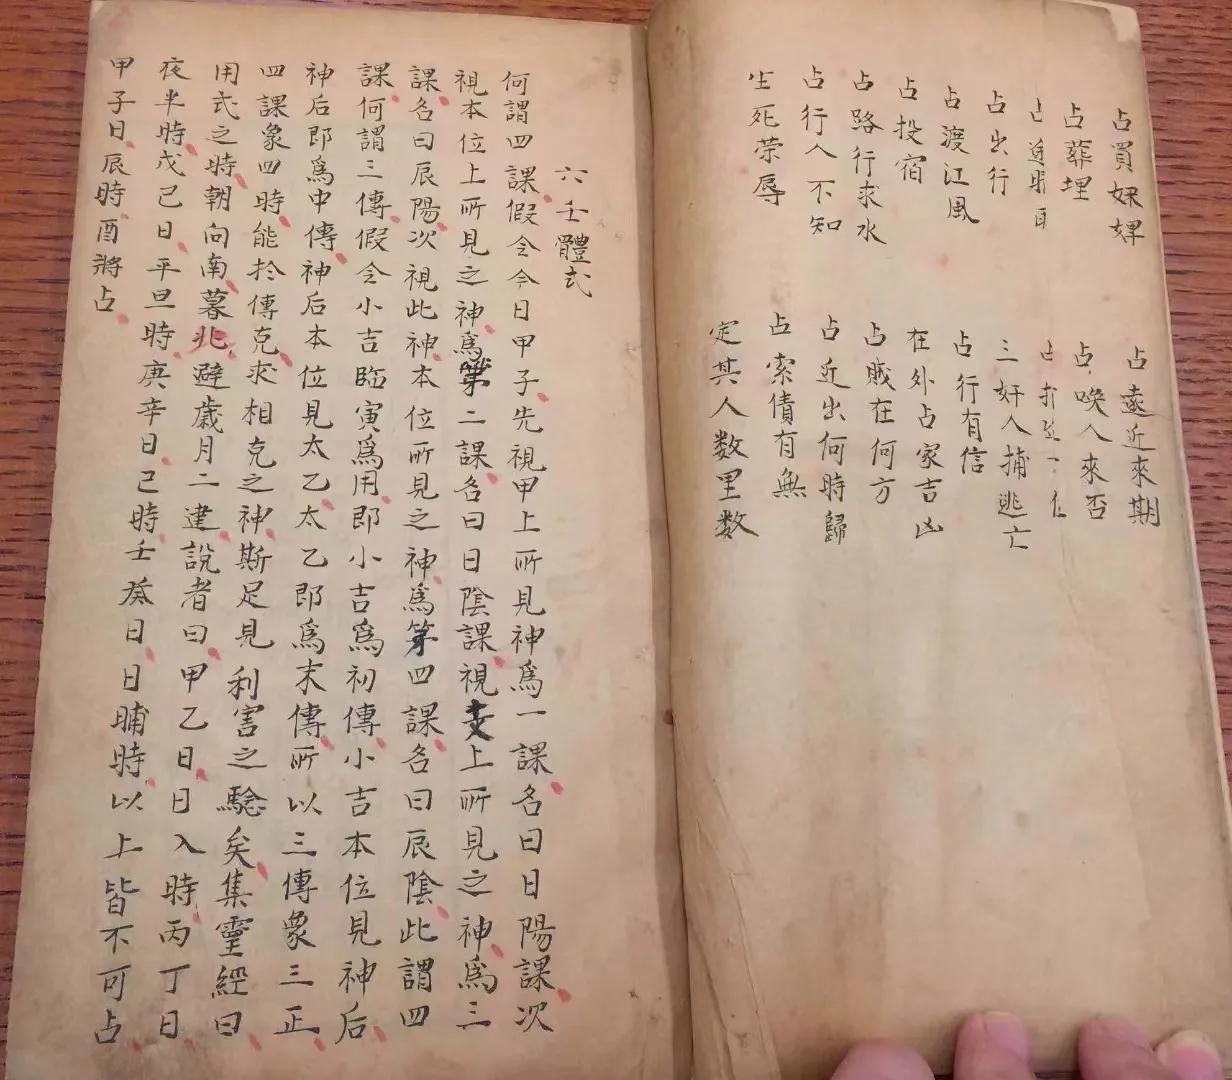 占買奴婢
占葬埋
占出行
占渡江風
占投宿
占路行求水
占行人不知
生死荣辱
占遠近來期
占喚人來否
三奸人捕逃亡
占行有信
在外占家吉凶
占賊在何方
占近出何時歸
占索債有無
定其人数里数
六壬體式
何謂四課假令今日甲子先視甲上所見神爲一課名曰日陽課次
視本位上所見之神爲第二課名曰日陰課視支上所見之神爲三
課名曰辰陽次視此神本位所見之神爲第四課名曰辰陰此謂四
課何謂三傳假令小吉臨寅爲用即小吉爲初傳小吉本位見神后
神后即爲中傳神后本位見太乙太乙即爲末傳所以三傳象三正
四課象四時能於傳克求相克之神斯足見利害之驗矣集靈經曰
用式之時朝向南暮北避歲月二建說者曰甲乙日日入時丙丁日
夜半時戊己日平旦時庚辛日己時壬癸日日晡時以上皆不可占
甲子日辰時酉將占